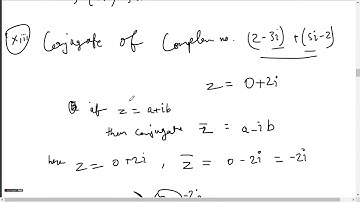 (xiii) Conjugate of Complex no. (2-3i) + (5i-2)
z = 0+2i
if z = a+ib
then conjugate z̅ = a-ib
here z = 0+2i , z̅ = 0-2i = -2i
-2i